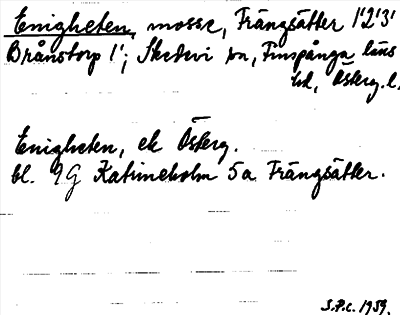 Enigheten, mosse, Frängsätter 1'2'3'
Brånstorp 1'; Skedevi sn, Finspånga läns
hd, Österg. l.
Enigheten, ek Österg.
bl. 9G Katrineholm 5a Frängsätter.
S.P.C. 1959.